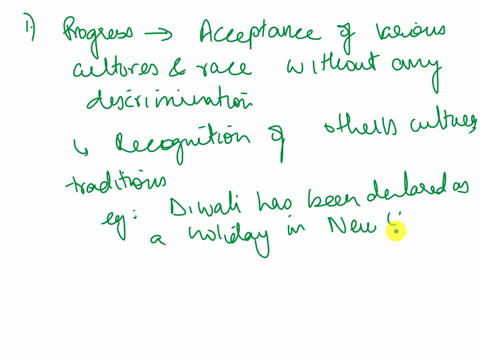 1) Progress → Acceptance of various
cultures & race without any
discrimination
↳ Recognition of others cultures,
traditions
eg: Diwali has been declared as
a holiday in New